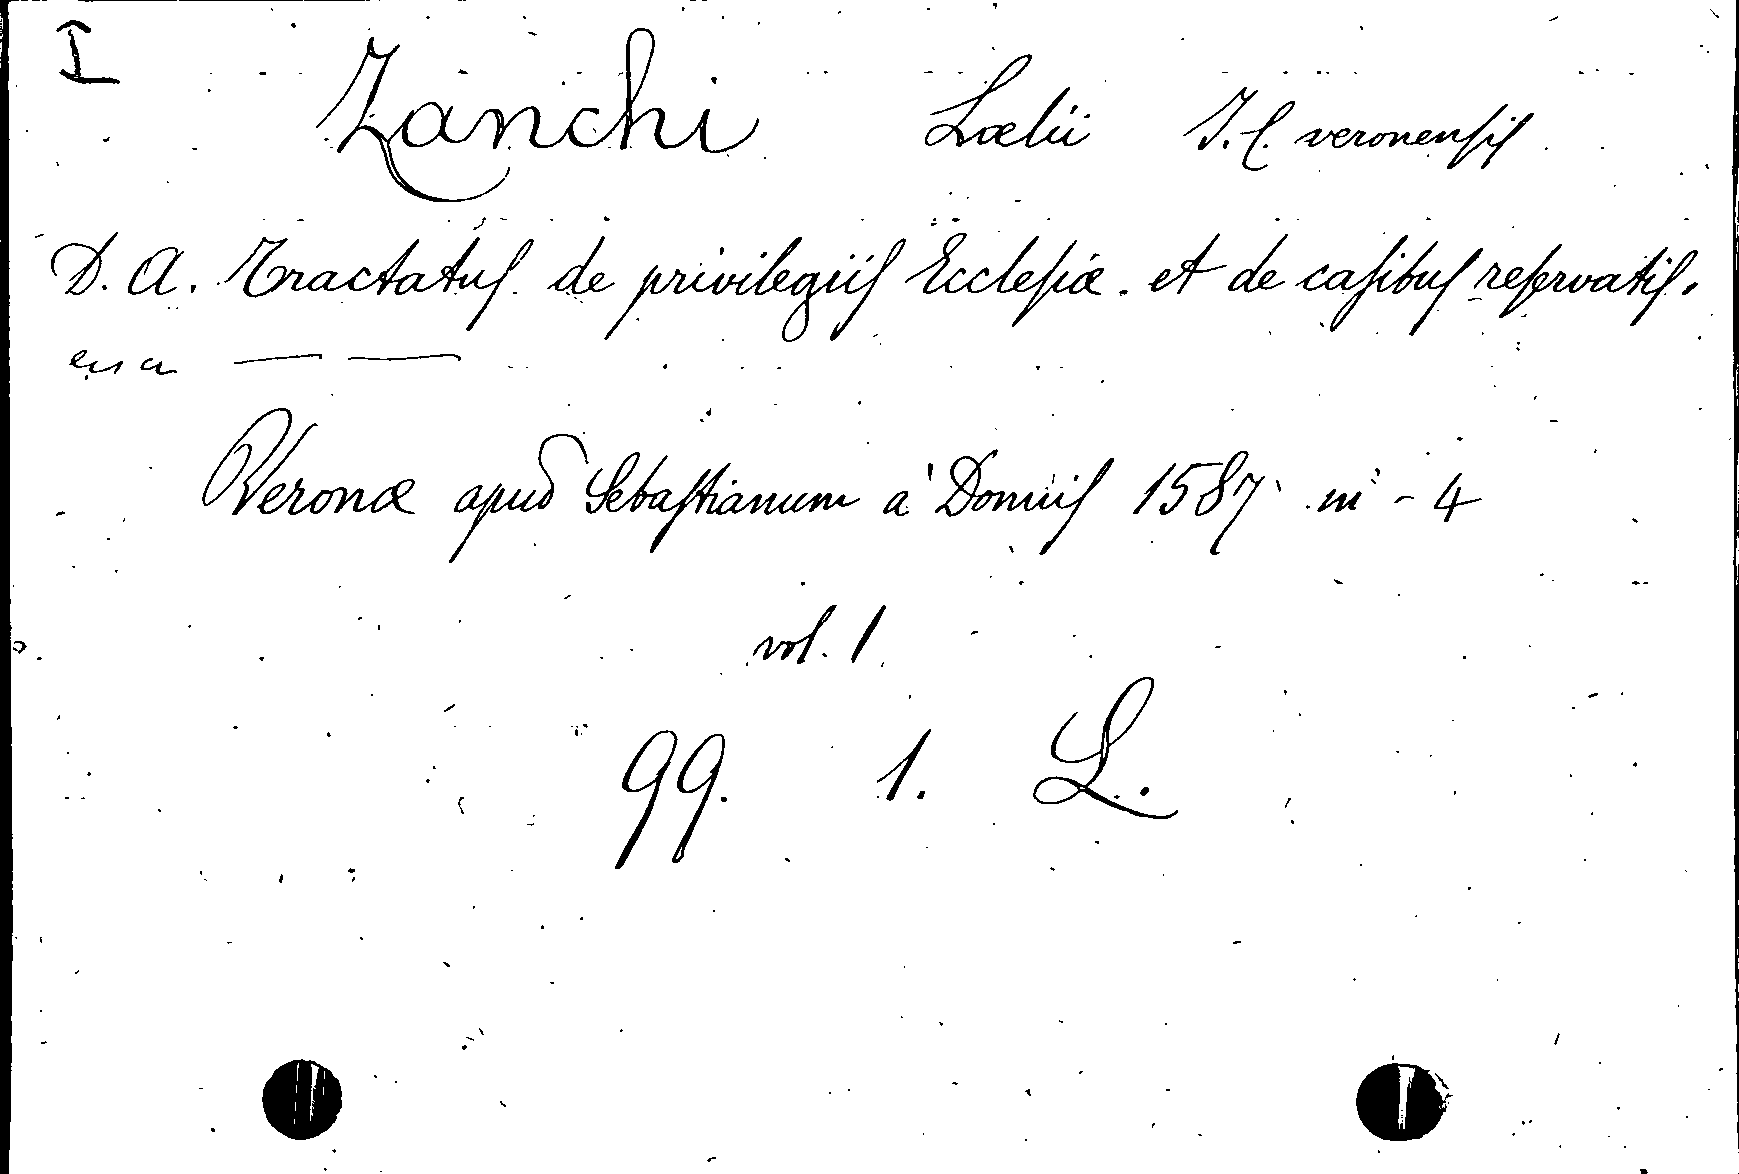 I
Zanchi Lælii I. C. veronensis
D. A. Tractatus de privilegiis Ecclesiæ. et de casibus reservatis.
Veronæ apud Sebastianum à Donnis 1587 in - 4
vol. 1
99. 1. L.